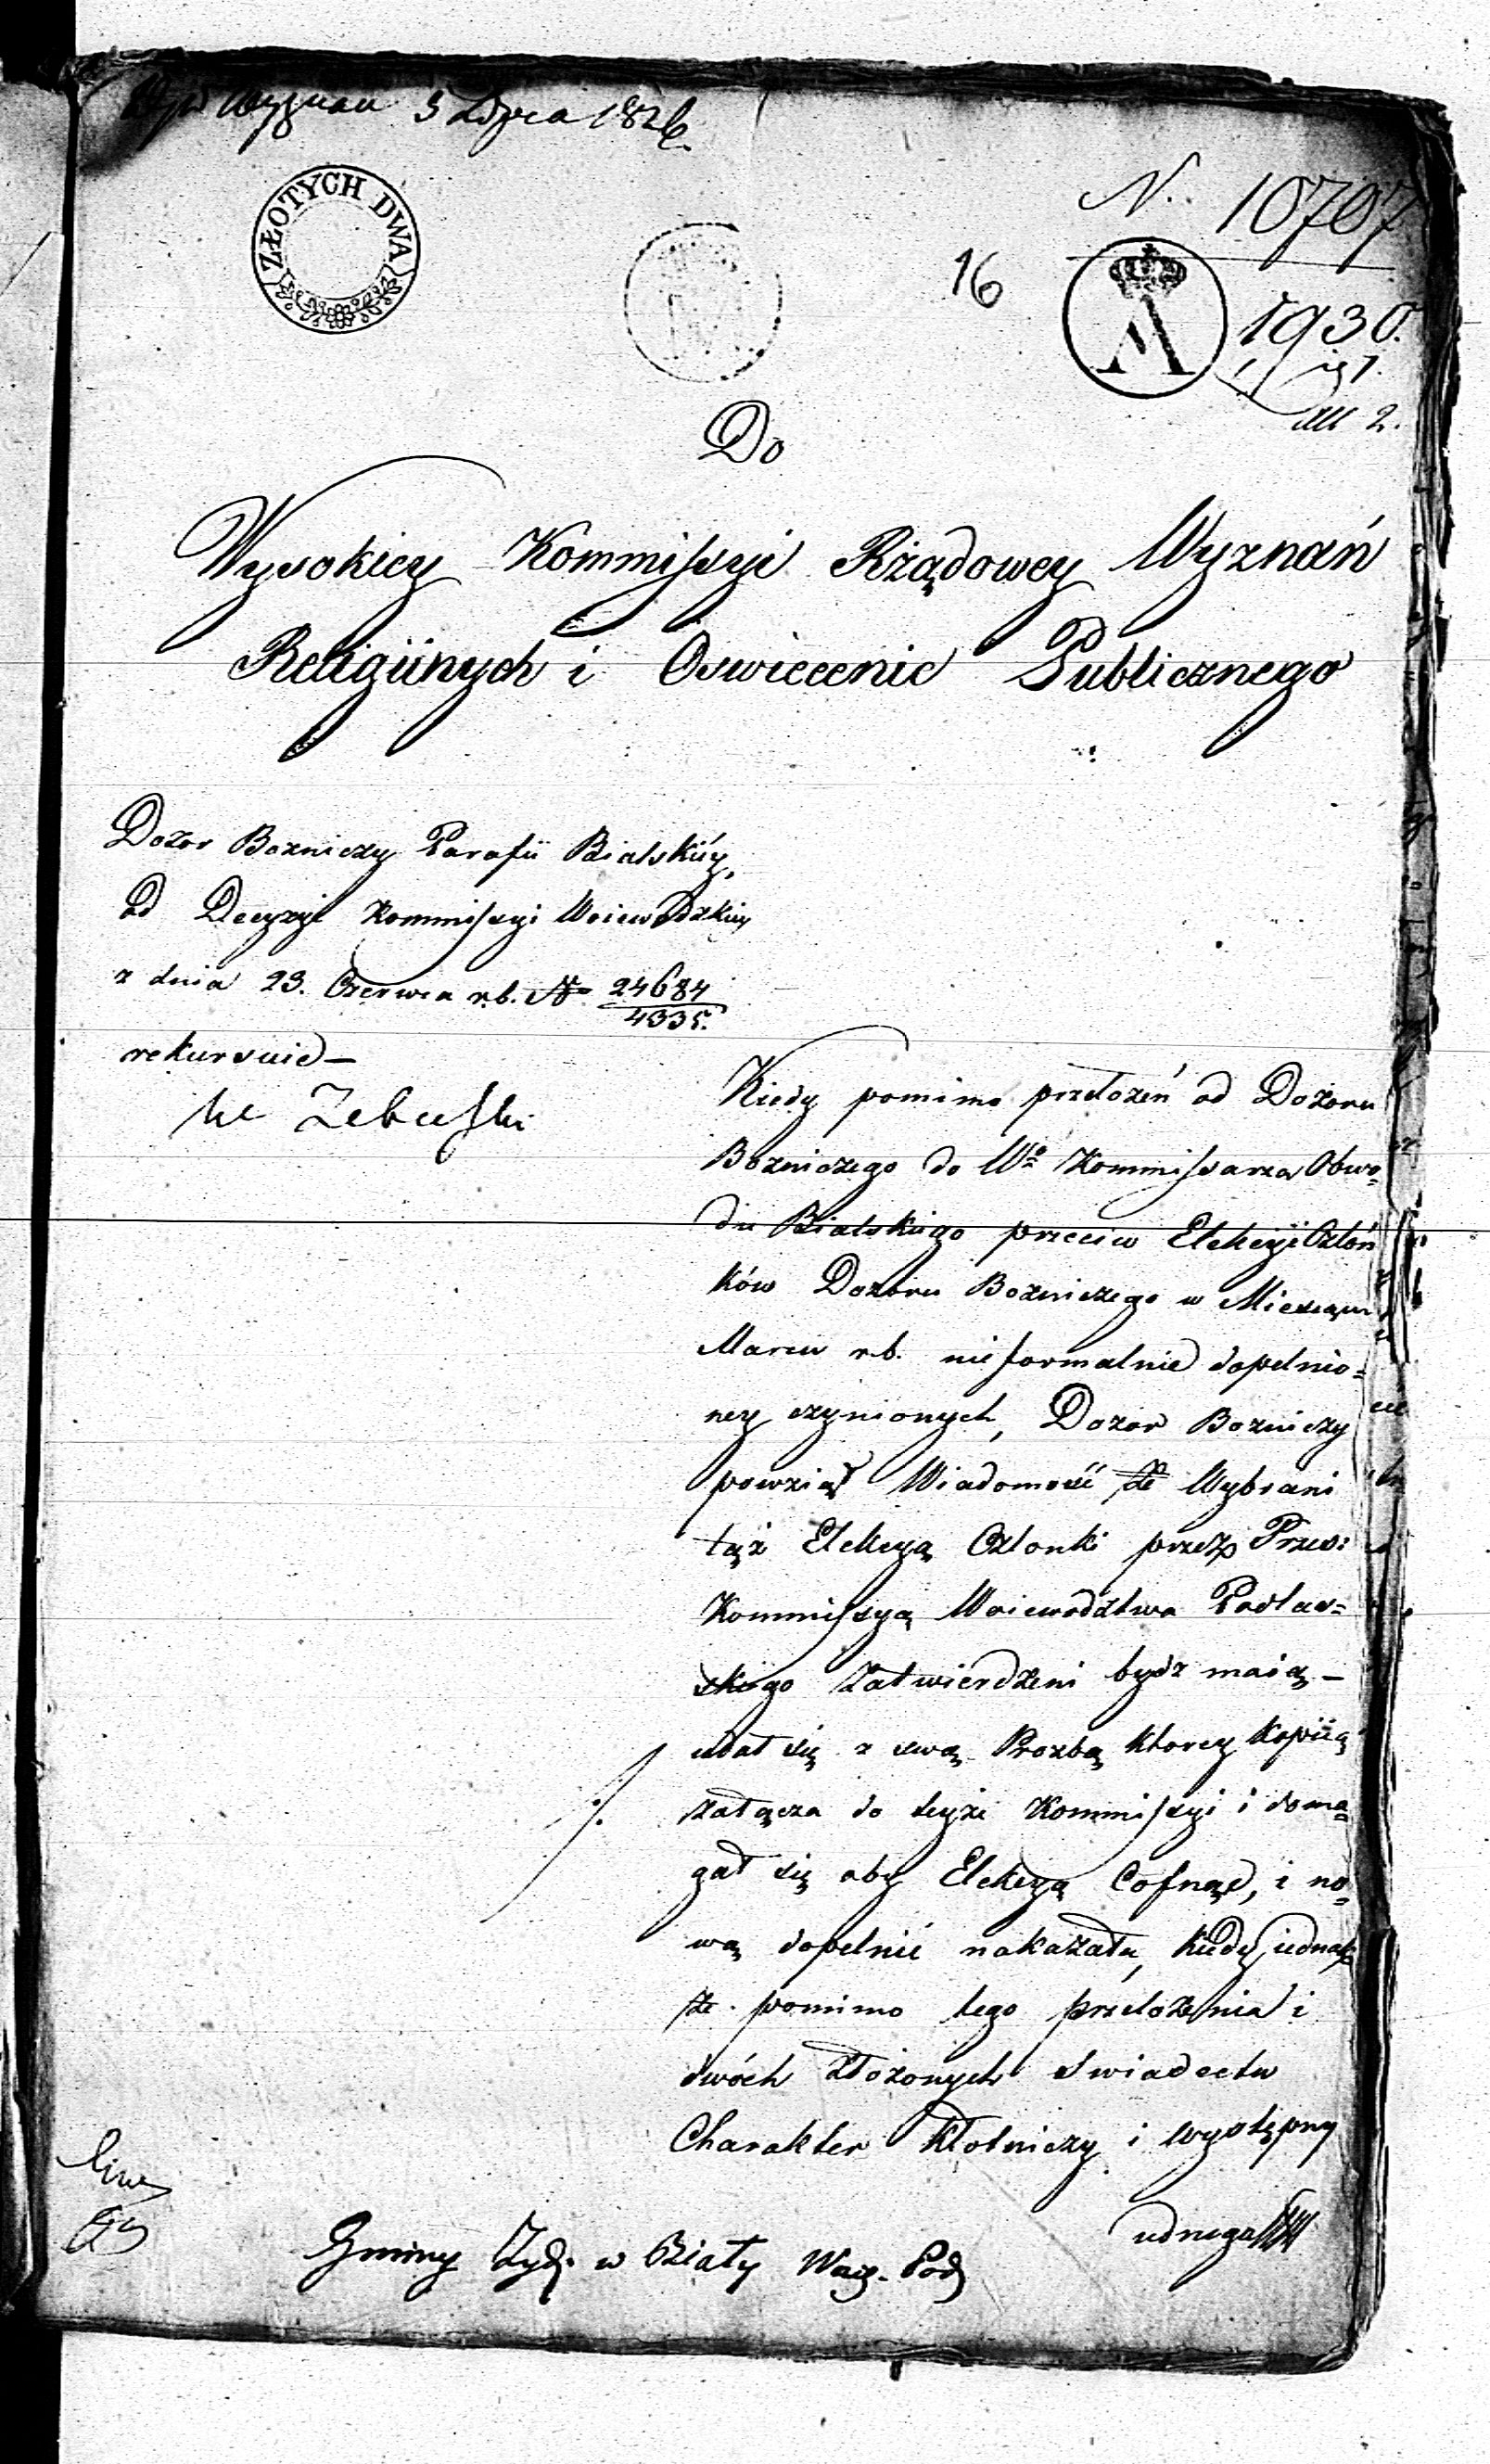 Wyznań 5 Lipca 1826.
ZŁOTYCH DWA
N. 10707
16
1930.
Do
Wysokiey Kommissyi Rządowey Wyznań
Religiinych i Oswiecenie Publicznego
Dozor Bozniczy Parafii Bialskiéy,
od Decyzyi Kommissyi Woiewodzkiey
z dnia 23. Czerwca r.b. No 24684/4335.
rekursuie —
Kiedy pomimo przełozeń od Dozoru
Bozniczego do Wo Kommissarza Obwo=
du Bialskiego przeciw Elekcyi Człón
ków Dozoru Bozniczego w Miesiącu
Marcu r.b. nieformalnie dopełnio=
ney czynionych, Dozor Bozniczy
powziął Wiadomość że Wybrani
tąż Elekcyą Członki przez Prześ:
Kommissyą Woiewodztwa Podlas=
skiego Zatwierdzeni bydz maią —
udał się z swą Prozbą ktorey kopiią
załącza do teyże Kommissyi i doma=
gał się aby Elekcyą Cofnąć, i no=
wą dopełnić nakazała, kiedy jednak
że pomimo tego przełożenia i
dwóch złożonych Swiadectw
Charakter Kłotniczy i występny
iednego
Gminy Żyd. w Biały Woy. Pod